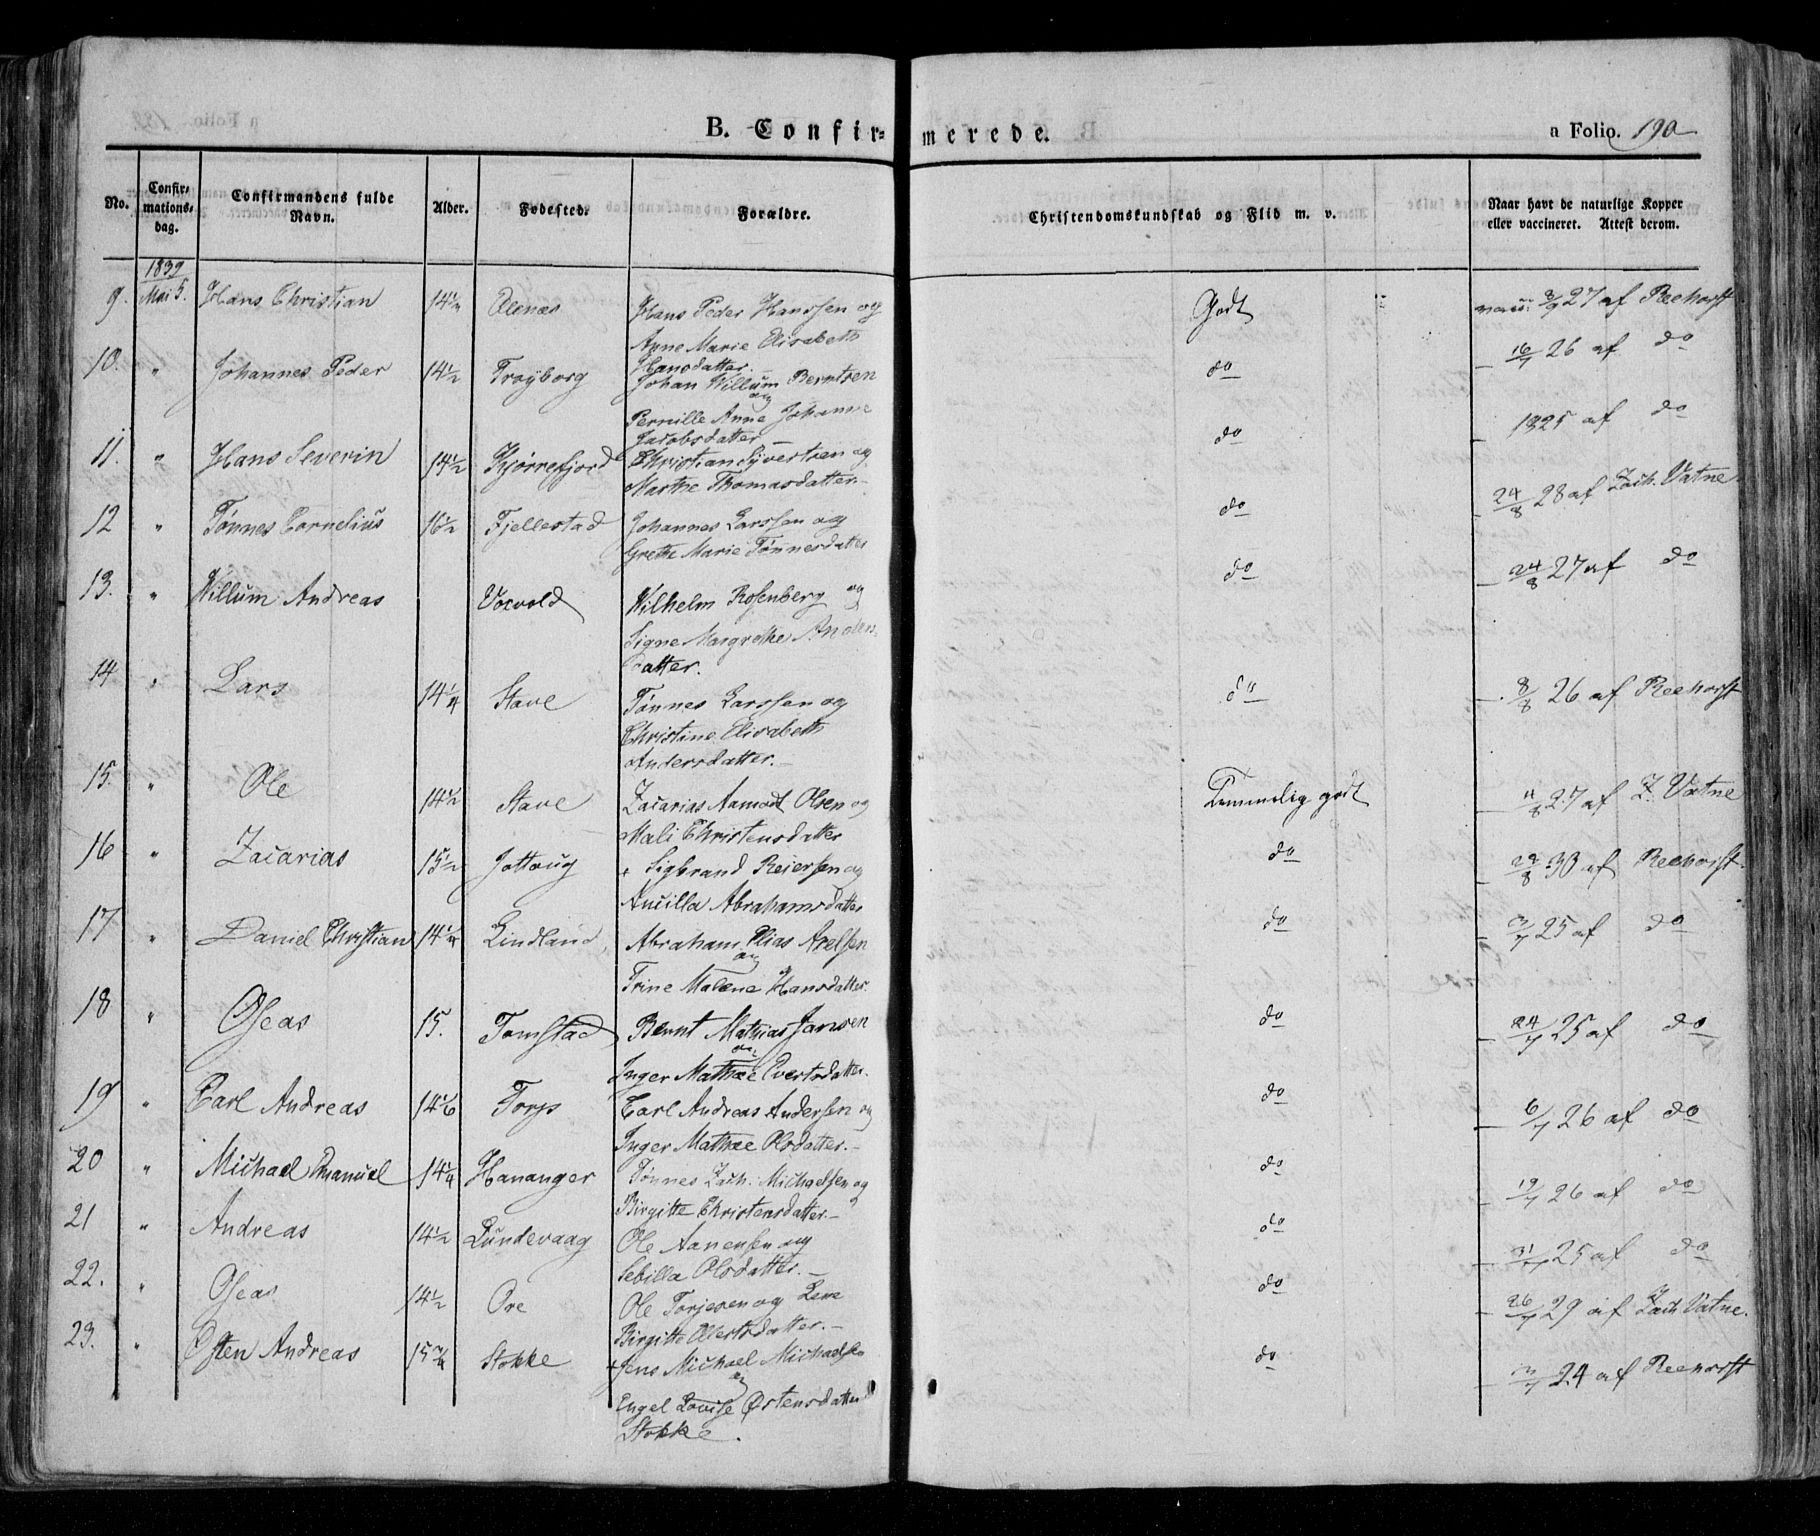 B. Confirmerede.
a Folio. 190
No. Confirmationsdag. Confirmandens fulde Navn. Alder. Fødested. Forældre. Christendomskundskab og Flid m. v. Naar havt de naturlige Kopper eller vaccineret. Attest derom.
1839
9. Mai 5. Hans Christian 14 1/4 Hans Peder Hanssen og Godt 27 af Reehorst
Anne Marie Elisabeth
Hansdatter.
10. " Johannes Peder 14 1/2 Trøyborg Johan Willum Berntsen do 16/7 26 af do
og
Pernille Anne Johanne
Jacobsdatter
11. " Hans Severin 14 1/2 Kjørrefjord Christian Syvertsen og do 1825 af do
Marthe Thomasdatter.
12 " Tønnes Cornelius 16 1/2 Fjellestad Johannes Larssen og do 24/8 28 af Zach. Vatne
Grethe Marie Tønnesdatter
13. " Willum Andreas Vorvold Wilhelm Rosenberg og do 24/8 27 af do
Signe Margrethe Anders
datter.
14 " Lars 14 1/4 Stave Tønnes Larssen og do 8/8 26 af Reehorst
Christine Elisabeth
Andersdatter.
15. " Ole 14 1/2 Stave Zacarias Aamodt Olsen og Temmelig godt 27 af Z. Vatne
Mali Christensdatter
16 " Zacarias 15 1/2 Jottoug + Sigbrand Reiersen og do 22/8 30 af Reehorst.
Ancilla Abrahamsdatter
17 " Daniel Christian 14 1/4 Lindland Abraham Elias Axelsen do 3/7 25 af do
og
Trine Malene Hansdatter.
18 " Oseas 15. Tomstad Bernt Mathias Jansen do 24/7 25 af do
og
Inger Mathæe Evertsdatter.
19 " Carl Andreas 14 1/6 Torp Carl Andreas Andersen og do 6/7 26 af do
Inger Mathæe Olsdatter.
20 " Michael Emanuel 14 1/4 Hananger Tønnes Zach. Michaelsen og do 19/7 26 af do
Birgitte Christensdatter.
21 " Andreas 14 1/2 Lundevaag Ole Aanensen og do 31/7 25 af do
Sebilla Olsdatter.
22. " Oseas 14 1/2 Ore Ole Torjesen og Lene do 26/7 29 af Zach. Vatne.
Birgitte Olertsdatter.
23. " Østen Andreas 15 3/4 Stokke + Jens Michael Michaelsen do 24 af Reehorst
og
Engel Lovise Østensdatter
Stokke.